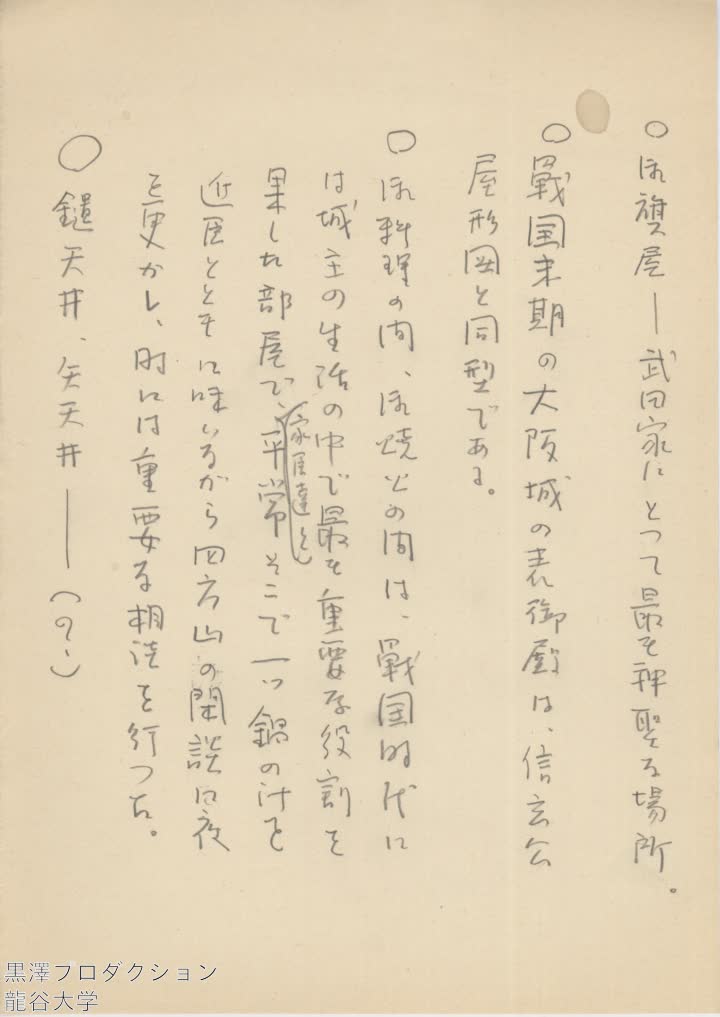 ○御旗屋―武田家にとって最も神聖な場所。
○戦国末期の大阪城の表御殿は、信玄公
屋形図と同型である。
○御料理の間、御焼火の間は、戦国時代に
は城主の生活の中で最も重要な役割を
果した部屋で、平常そこで一ツ鍋の汁を
家臣達と
近臣とともに味いながら四方山の閑談に夜
を更かし、時には重要な相談を行つた。
○鑓天井、矢天井――(?)
黒澤プロダクション
龍谷大学